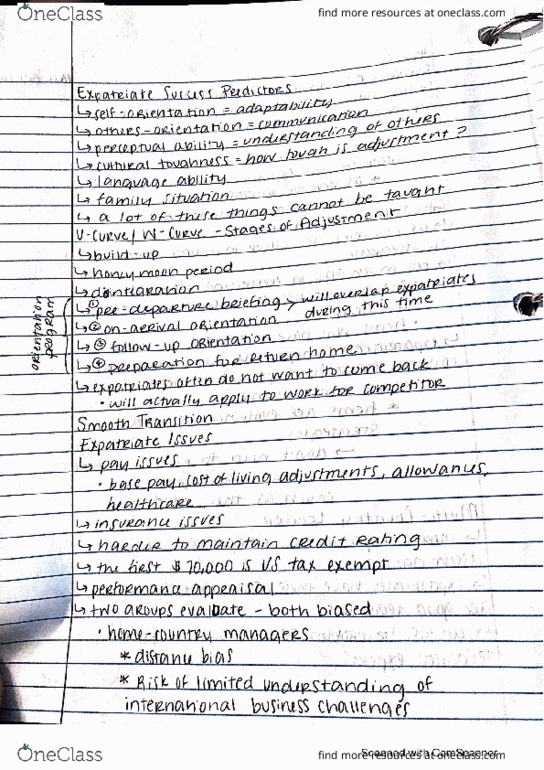 OneClass
find more resources at oneclass.com
Expatriate Success Predictors
↳ self-orientation = adaptability
↳ others-orientation = communication
↳ perceptual ability = understanding of others
↳ cultural toughness = how tough is adjustment?
↳ language ability
↳ family situation
↳ a lot of these things cannot be taught
U-curve/ W-curve - Stages of Adjustment
↳ build-up
↳ honeymoon period
↳ disintigration
orientation program
↳ ① pre-departure briefing > will overlap expatriates
during this time
↳ ② on-arrival orientation
↳ ③ follow-up orientation
↳ ④ preparation for return home
↳ expatriates often do not want to come back
• will actually apply to work for competitor
Smooth Transition
Expatriate Issues
↳ pay issues
• base pay, cost of living adjustments, allowances,
healthcare
↳ insurance issues
↳ harder to maintain credit rating
↳ the first $70,000 is US tax exempt
↳ performance appraisal
↳ two groups evaluate - both biased
• home-country managers
* distance bias
* Risk of limited understanding of
international business challenges
OneClass
find more resources at oneclass.com
Scanned with CamScanner